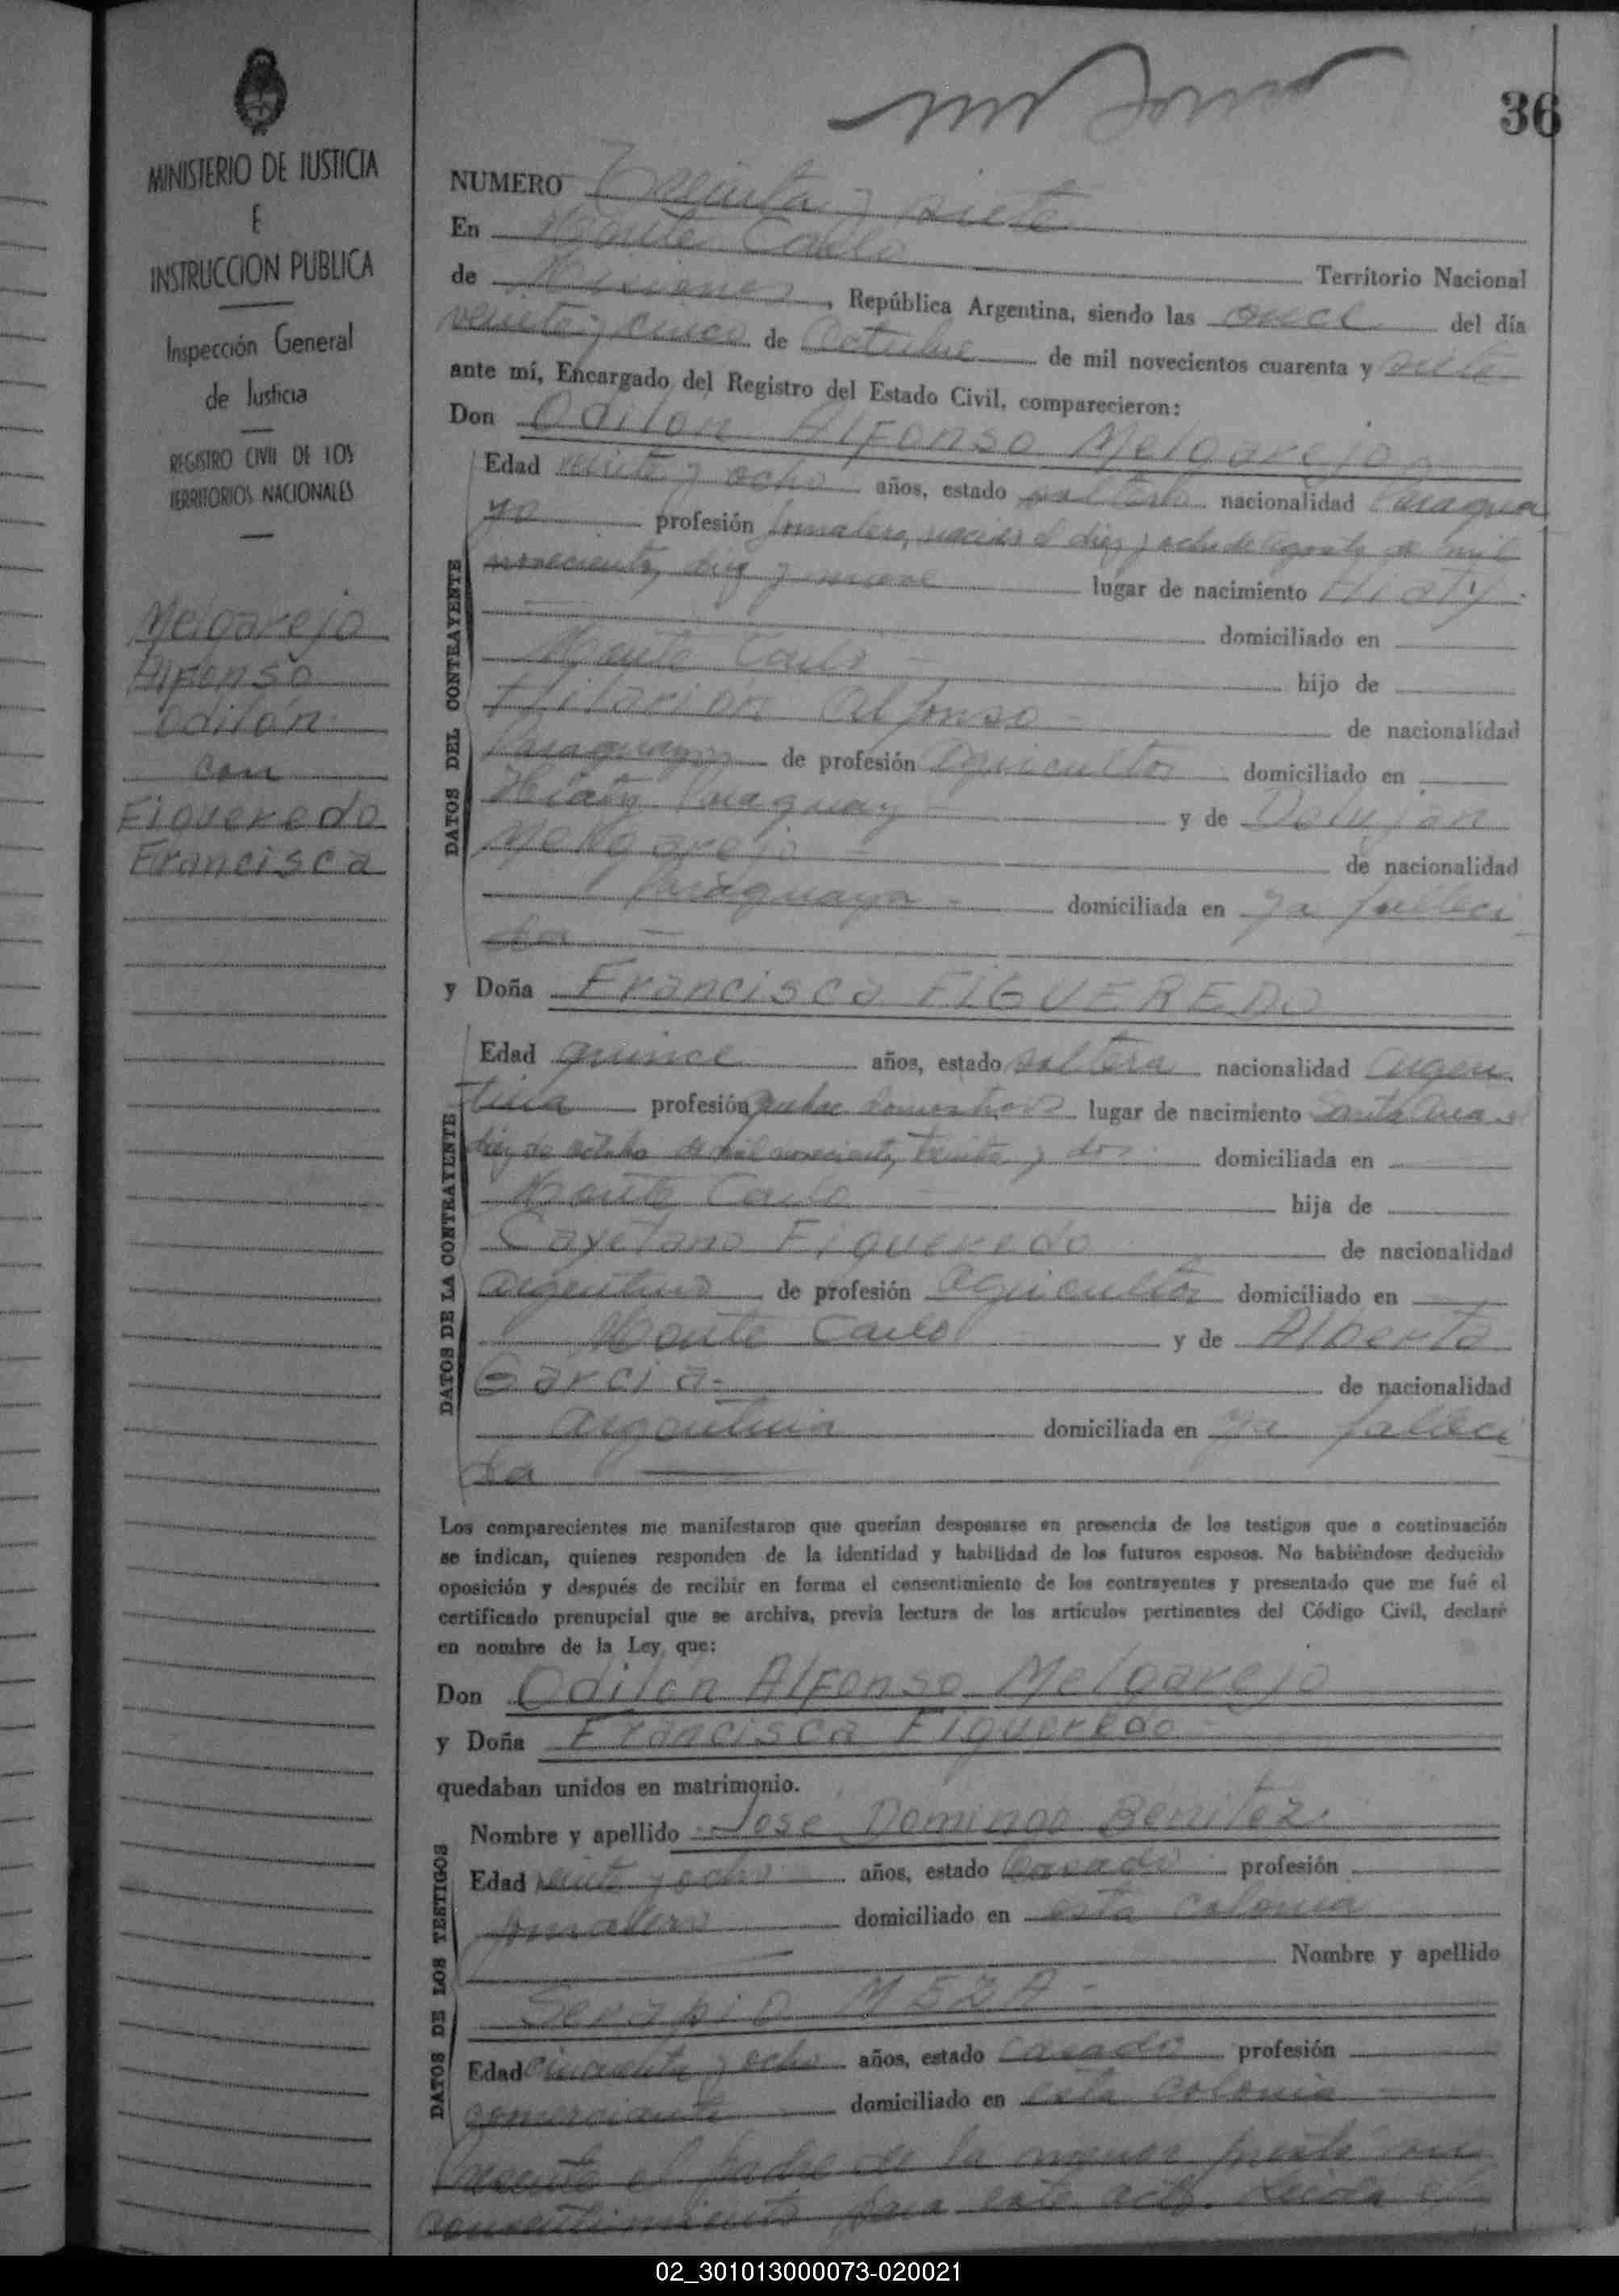 36
MINISTERIO DE JUSTICIA
E
INSTRUCCION PUBLICA
Inspección General
de Justicia
REGISTRO CIVIL DE LOS
TERRITORIOS NACIONALES
Melgarejo
Alfonso
Odilón
con
Figueredo
Francisca
NUMERO Treinta y siete
En Monte Carlo
Territorio Nacional
de Misiones, República Argentina, siendo las once del día
veinte y cinco de Octubre de mil novecientos cuarenta y siete
ante mí, Encargado del Registro del Estado Civil, comparecieron:
Don Odilon Alfonso Melgarejo
Edad veinte y ocho años, estado soltero nacionalidad Paragua
yo profesión jornalero, nacido el diez y ocho de Agosto de mil
novecientos diez y nueve lugar de nacimiento Hiaty.
domiciliado en
Monte Carlo -
hijo de
Hilarion Alfonso -
de nacionalidad
Paraguayo de profesión agricultor domiciliado en
Hiaty Paraguay - y de
Melgarejo -
de nacionalidad
Paraguaya - domiciliada en ya falleci
da -
y Doña Francisca FIGUEREDO
Edad quince años, estado soltera nacionalidad Argen
tina profesión domesticos lugar de nacimiento Santa Ana el
diez de octubre de mil novecientos treinta y dos. domiciliada en
Monte Carlo -
hija de
Cayetano Figueredo
de nacionalidad
argentino de profesión agricultor domiciliado en
Monte Carlo y de Alberta
Garcia-
de nacionalidad
argentina domiciliada en ya falleci
da
Los comparecientes me manifestaron que querían desposarse en presencia de los testigos que a continuación
se indican, quienes responden de la identidad y habilidad de los futuros esposos. No habiéndose deducido
oposición y después de recibir en forma el consentimiento de los contrayentes y presentado que me fué el
certificado prenupcial que se archiva, previa lectura de los artículos pertinentes del Código Civil, declaré
en nombre de la Ley, que:
Don Odilón Alfonso Melgarejo
y Doña Francisca Figueredo -
quedaban unidos en matrimonio.
Nombre y apellido José Domingo Benitez.
Edad veinte y ocho años, estado Casado profesión
jornalero domiciliado en esta colonia
Nombre y apellido
Serapio MEZA -
Edad cincuenta y ocho años, estado casado profesión
comerciante domiciliado en esta colonia -
Presente el padre de la menor prestó su
consentimiento para este acto. Leída el
DATOS DEL CONTRAYENTE
DATOS DE LA CONTRAYENTE
DATOS DE LOS TESTIGOS
02_301013000073-020021